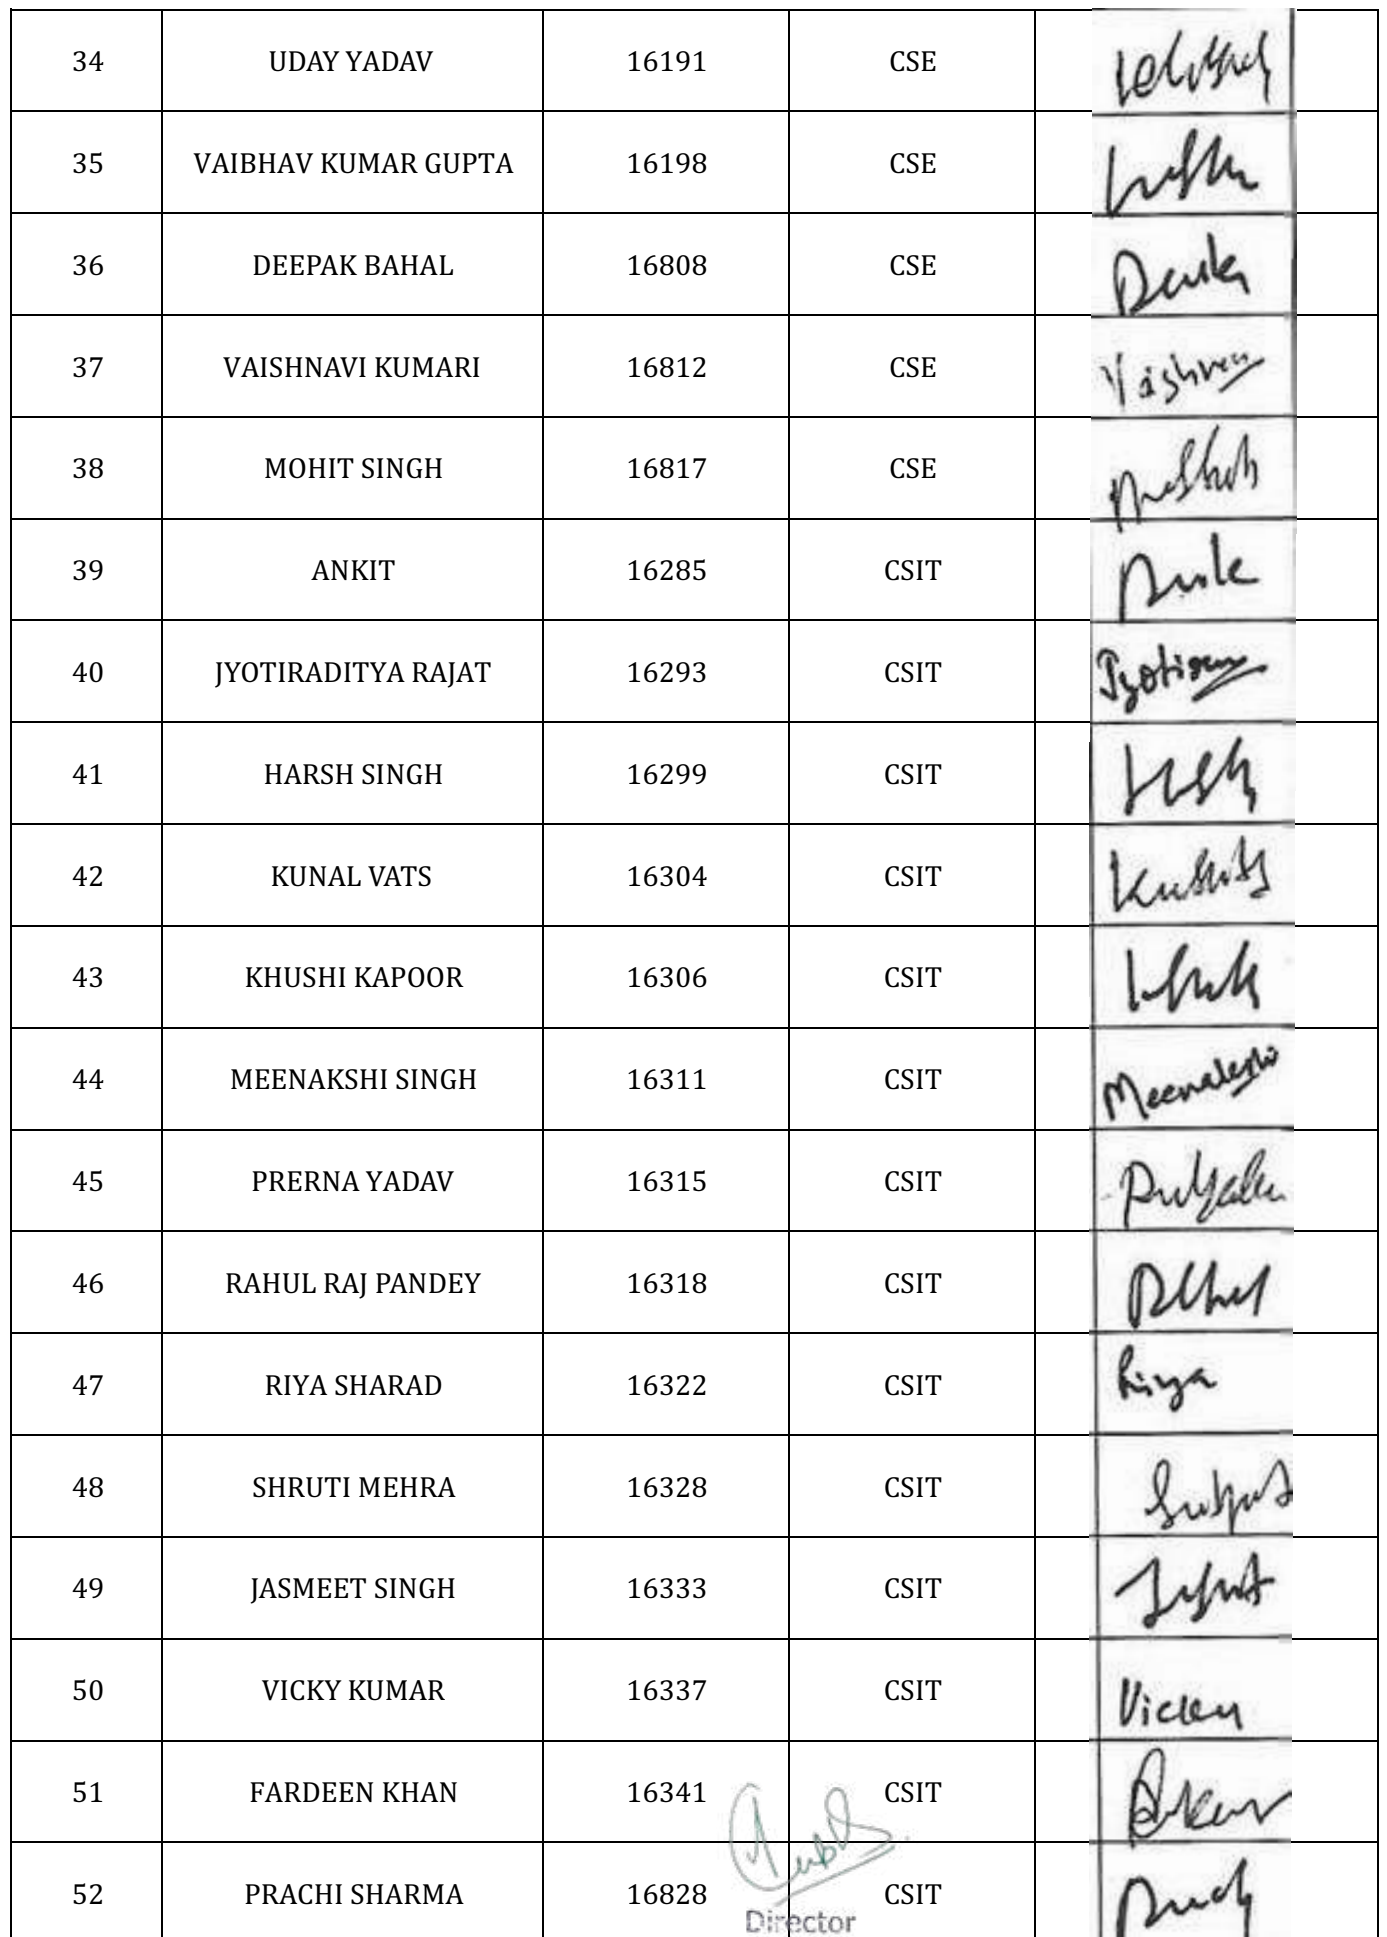 34 UDAY YADAV 16191 CSE
35 VAIBHAV KUMAR GUPTA 16198 CSE
36 DEEPAK BAHAL 16808 CSE
37 VAISHNAVI KUMARI 16812 CSE
38 MOHIT SINGH 16817 CSE
39 ANKIT 16285 CSIT
40 JYOTIRADITYA RAJAT 16293 CSIT
41 HARSH SINGH 16299 CSIT
42 KUNAL VATS 16304 CSIT
43 KHUSHI KAPOOR 16306 CSIT
44 MEENAKSHI SINGH 16311 CSIT
45 PRERNA YADAV 16315 CSIT
46 RAHUL RAJ PANDEY 16318 CSIT
47 RIYA SHARAD 16322 CSIT Riya
48 SHRUTI MEHRA 16328 CSIT
49 JASMEET SINGH 16333 CSIT
50 VICKY KUMAR 16337 CSIT Vicky
51 FARDEEN KHAN 16341 CSIT
52 PRACHI SHARMA 16828 CSIT
Director